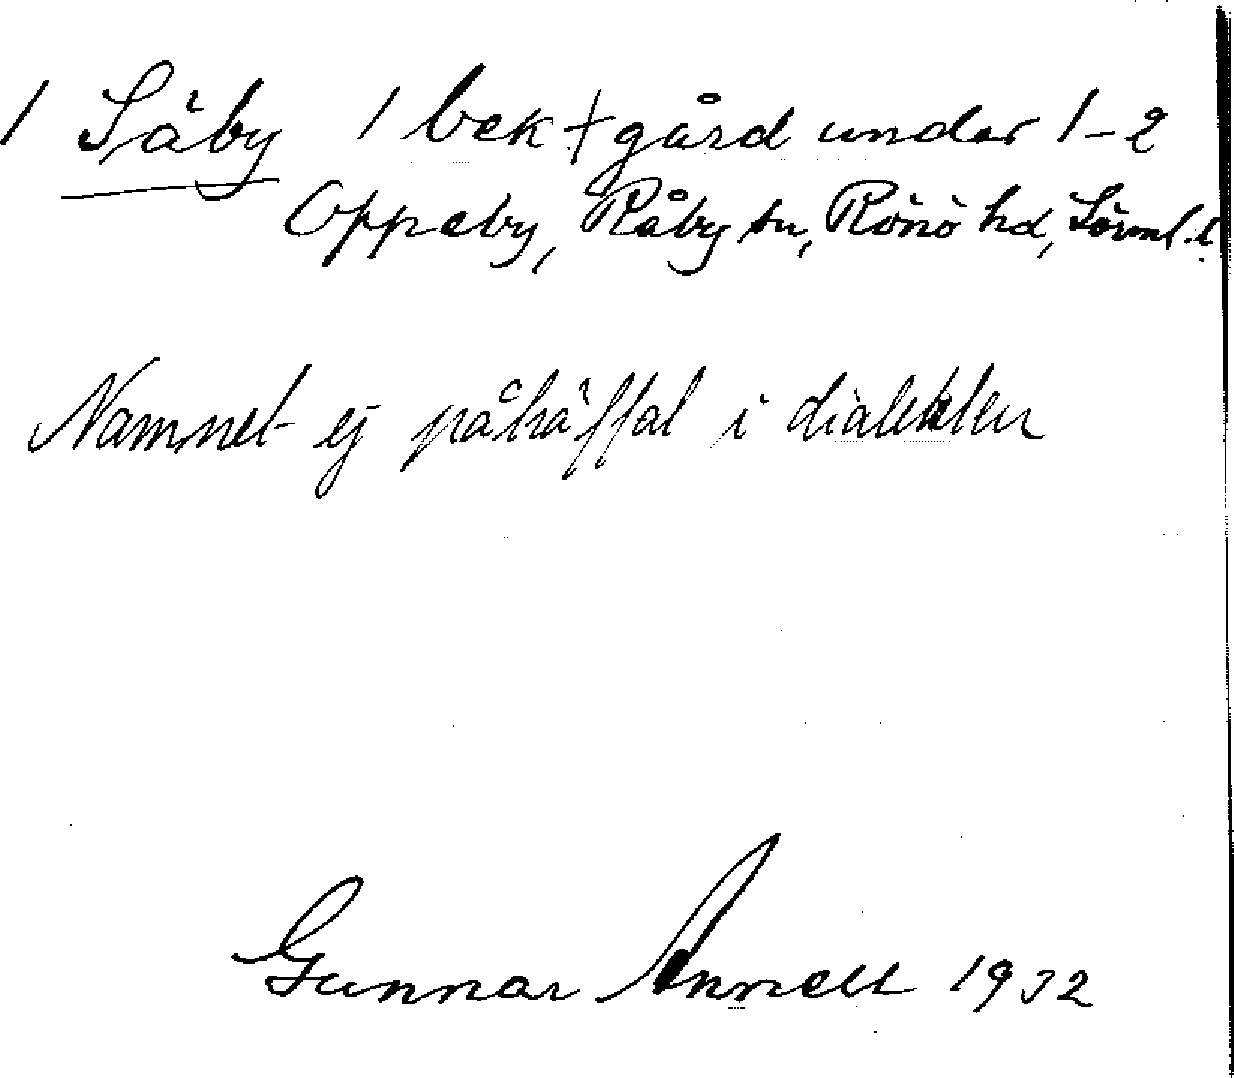 1 Säby 1 bek + gård under 1-2
Oppeby, Råby sn, Rönö hd, Sörml. l.
Namnet ej påträffat i dialekten
Gunnar Annell 1932